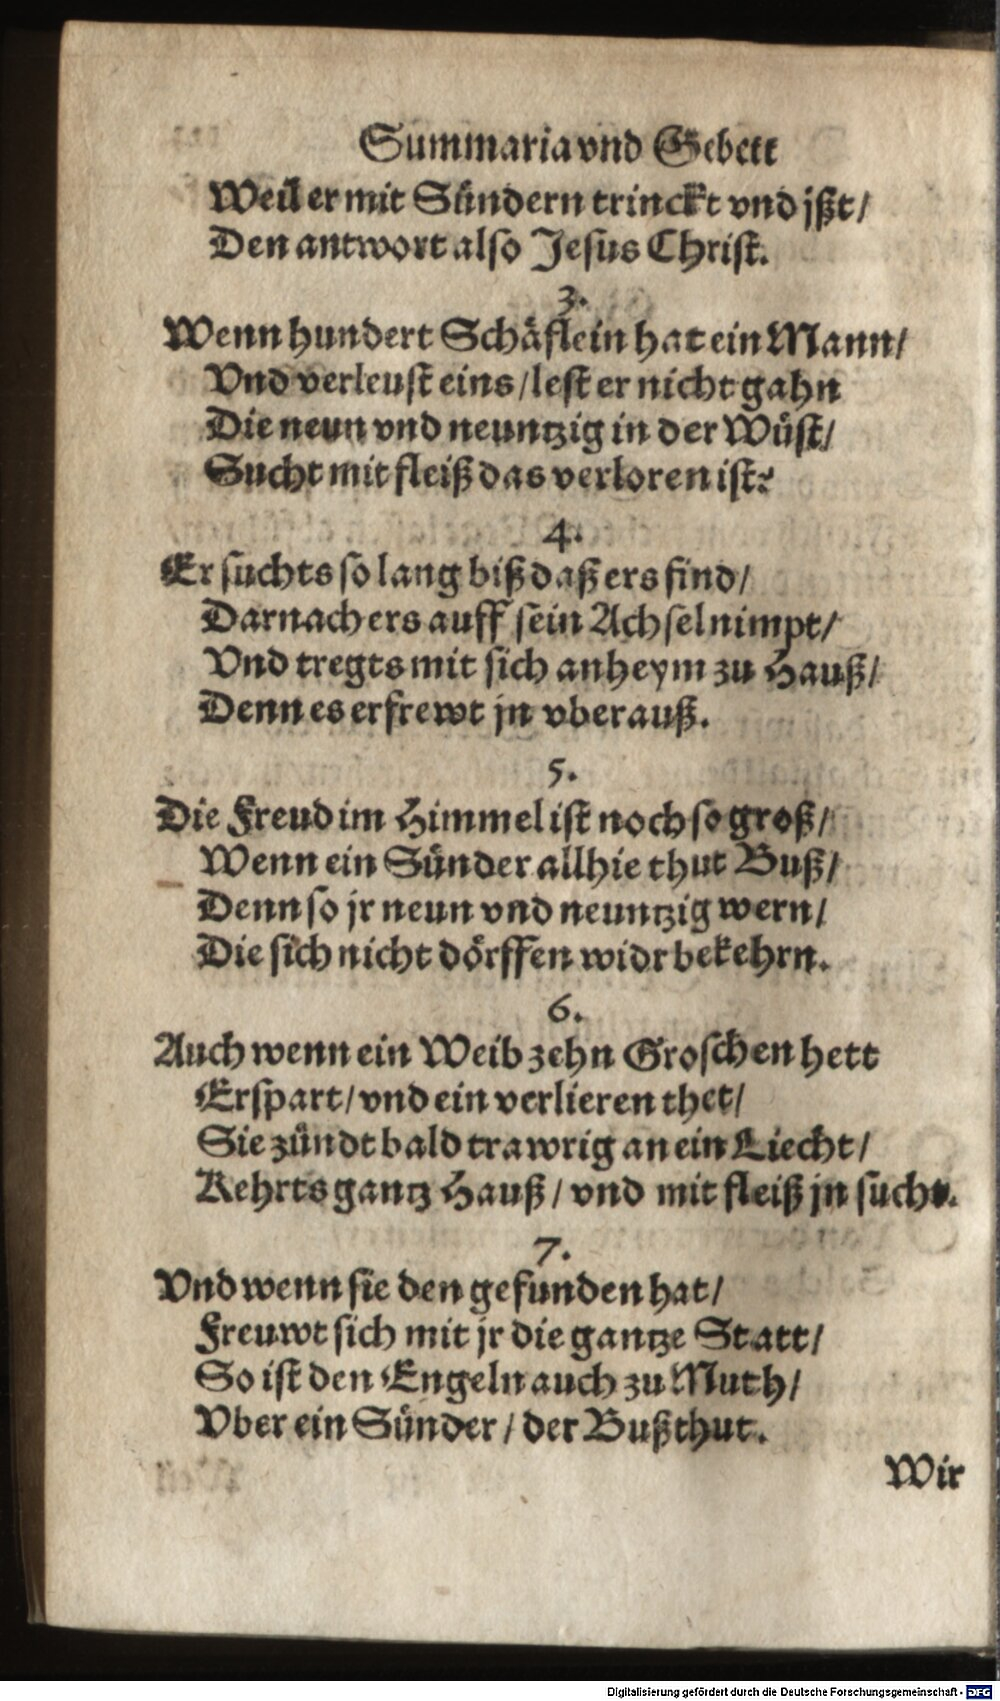 Summaria vnd Gebett
Weil er mit Sündern trinckt vnd jßt/
Den antwort also Jesus Christ.
3.
Wenn hundert Schäflein hat ein Mann/
Vnd verleust eins/ lest er nicht gahn
Die neun vnd neuntzig in der Wüst/
Sucht mit fleiß das verloren ist?
4.
Er suchts so lang biß daß ers find/
Darnach ers auff sein Achsel nimpt/
Vnd tregts mit sich anheym zu Hauß/
Denn es erfrewt jn vberauß.
5.
Die Freud im Himmel ist noch so groß/
Wenn ein Sünder allhie thut Buß/
Denn so jr neun vnd neuntzig wern/
Die sich nicht dörffen widr bekehrn.
6.
Auch wenn ein Weib zehn Groschen hett
Erspart/ vnd ein verlieren thet/
Sie zündt bald trawrig an ein Liecht/
Kehrts gantz Hauß/ vnd mit fleiß jn sucht.
7.
Vnd wenn sie den gefunden hat/
Freuwt sich mit jr die gantze Statt/
So ist den Engeln auch zu Muth/
Vber ein Sünder/ der Buß thut.
Wir
Digitalisierung gefördert durch die Deutsche Forschungsgemeinschaft - DFG